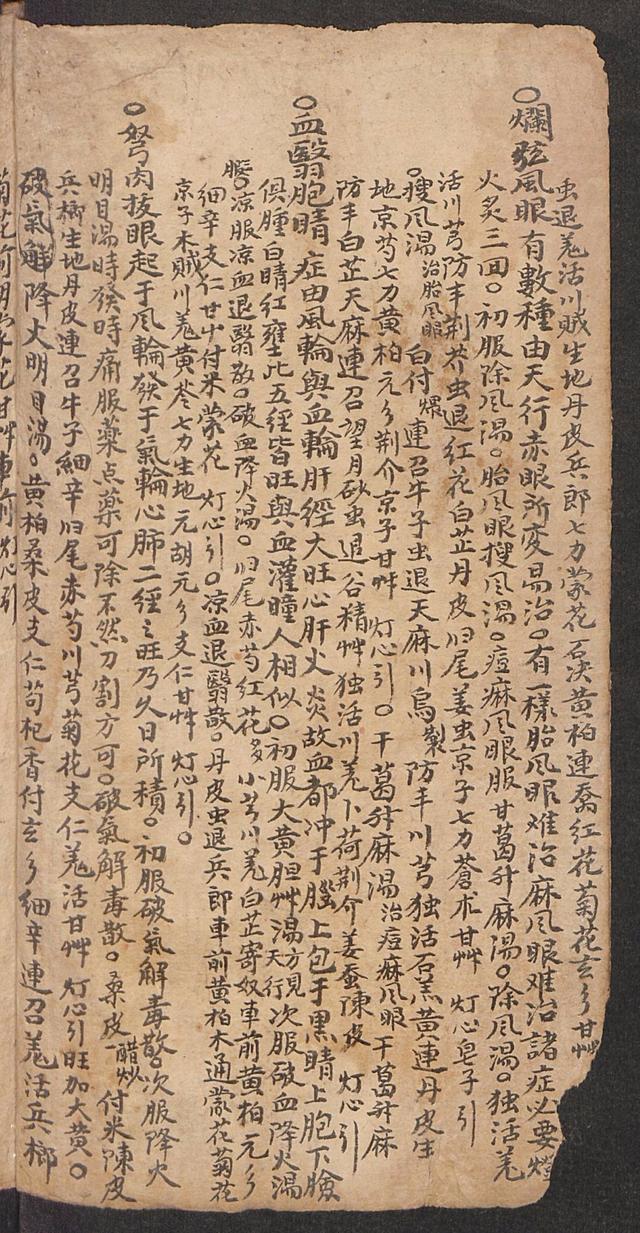 虫退羌活川贼生地丹皮兵郎七力蒙花石决黄柏連喬红花菊花玄乡甘艸
○爛弦風眼有數種由天行赤眼所变易治○有一樣胎风眼难治麻风眼难治諸症必要燈
火炙三回○初服除风湯○胎风眼搜风湯○痘麻风眼服甘葛升麻湯○除风湯○独活羌
活川芎防丰荆芥虫退红花白芷丹皮归尾姜虫京子七力蒼朮甘艸 灯心皂子引
○搜风湯治胎风眼 白付煨連召牛子虫退天麻川烏製防丰川芎独活石羔黄連丹皮生
地京芍七力黄柏元乡荆介京子甘艸 灯心引○干葛升麻湯治痘麻风眼 干葛升麻
防丰白芷天麻連召望月砂虫退谷精艸独活川羌卜荷荆介姜蚕陳皮 灯心引
○血翳胞睛 症由風輪與血輪肝經大旺心肝火炎故血都冲于腦上包于黑睛上胞下臉
俱腫白睛红壅此五經皆旺與血灌瞳人相似○初服大黄胆艸湯方見天行次服破血降火湯
臨○凉服凉血退翳散○破血降火湯○归尾赤芍红花多小芎川羌白芷寄奴車前黄柏元乡
细辛支仁甘艸付米蒙花 灯心引○凉血退翳散○丹皮虫退兵郎車前黄柏木通蒙花菊花
京子木贼川羌黄芩七力生地元胡元乡支仁甘艸 灯心引○
○努肉扳眼起于风輪發于氣輪心肺二經之旺乃久日所積○初服破氣解毒散○次服降火
明目湯時發時痛服藥点藥可除不然刀割方可○破氣解毒散○桑皮醋炒付米陳皮
兵榔生地丹皮連召牛子細辛归尾赤芍川芎菊花支仁羌活甘艸 灯心引旺加大黄○
破氣解降火明目湯○黄柏桑皮支仁苟杞香付玄乡细辛連召羌活兵榔
菊花前明 花甘艸車前 灯心引